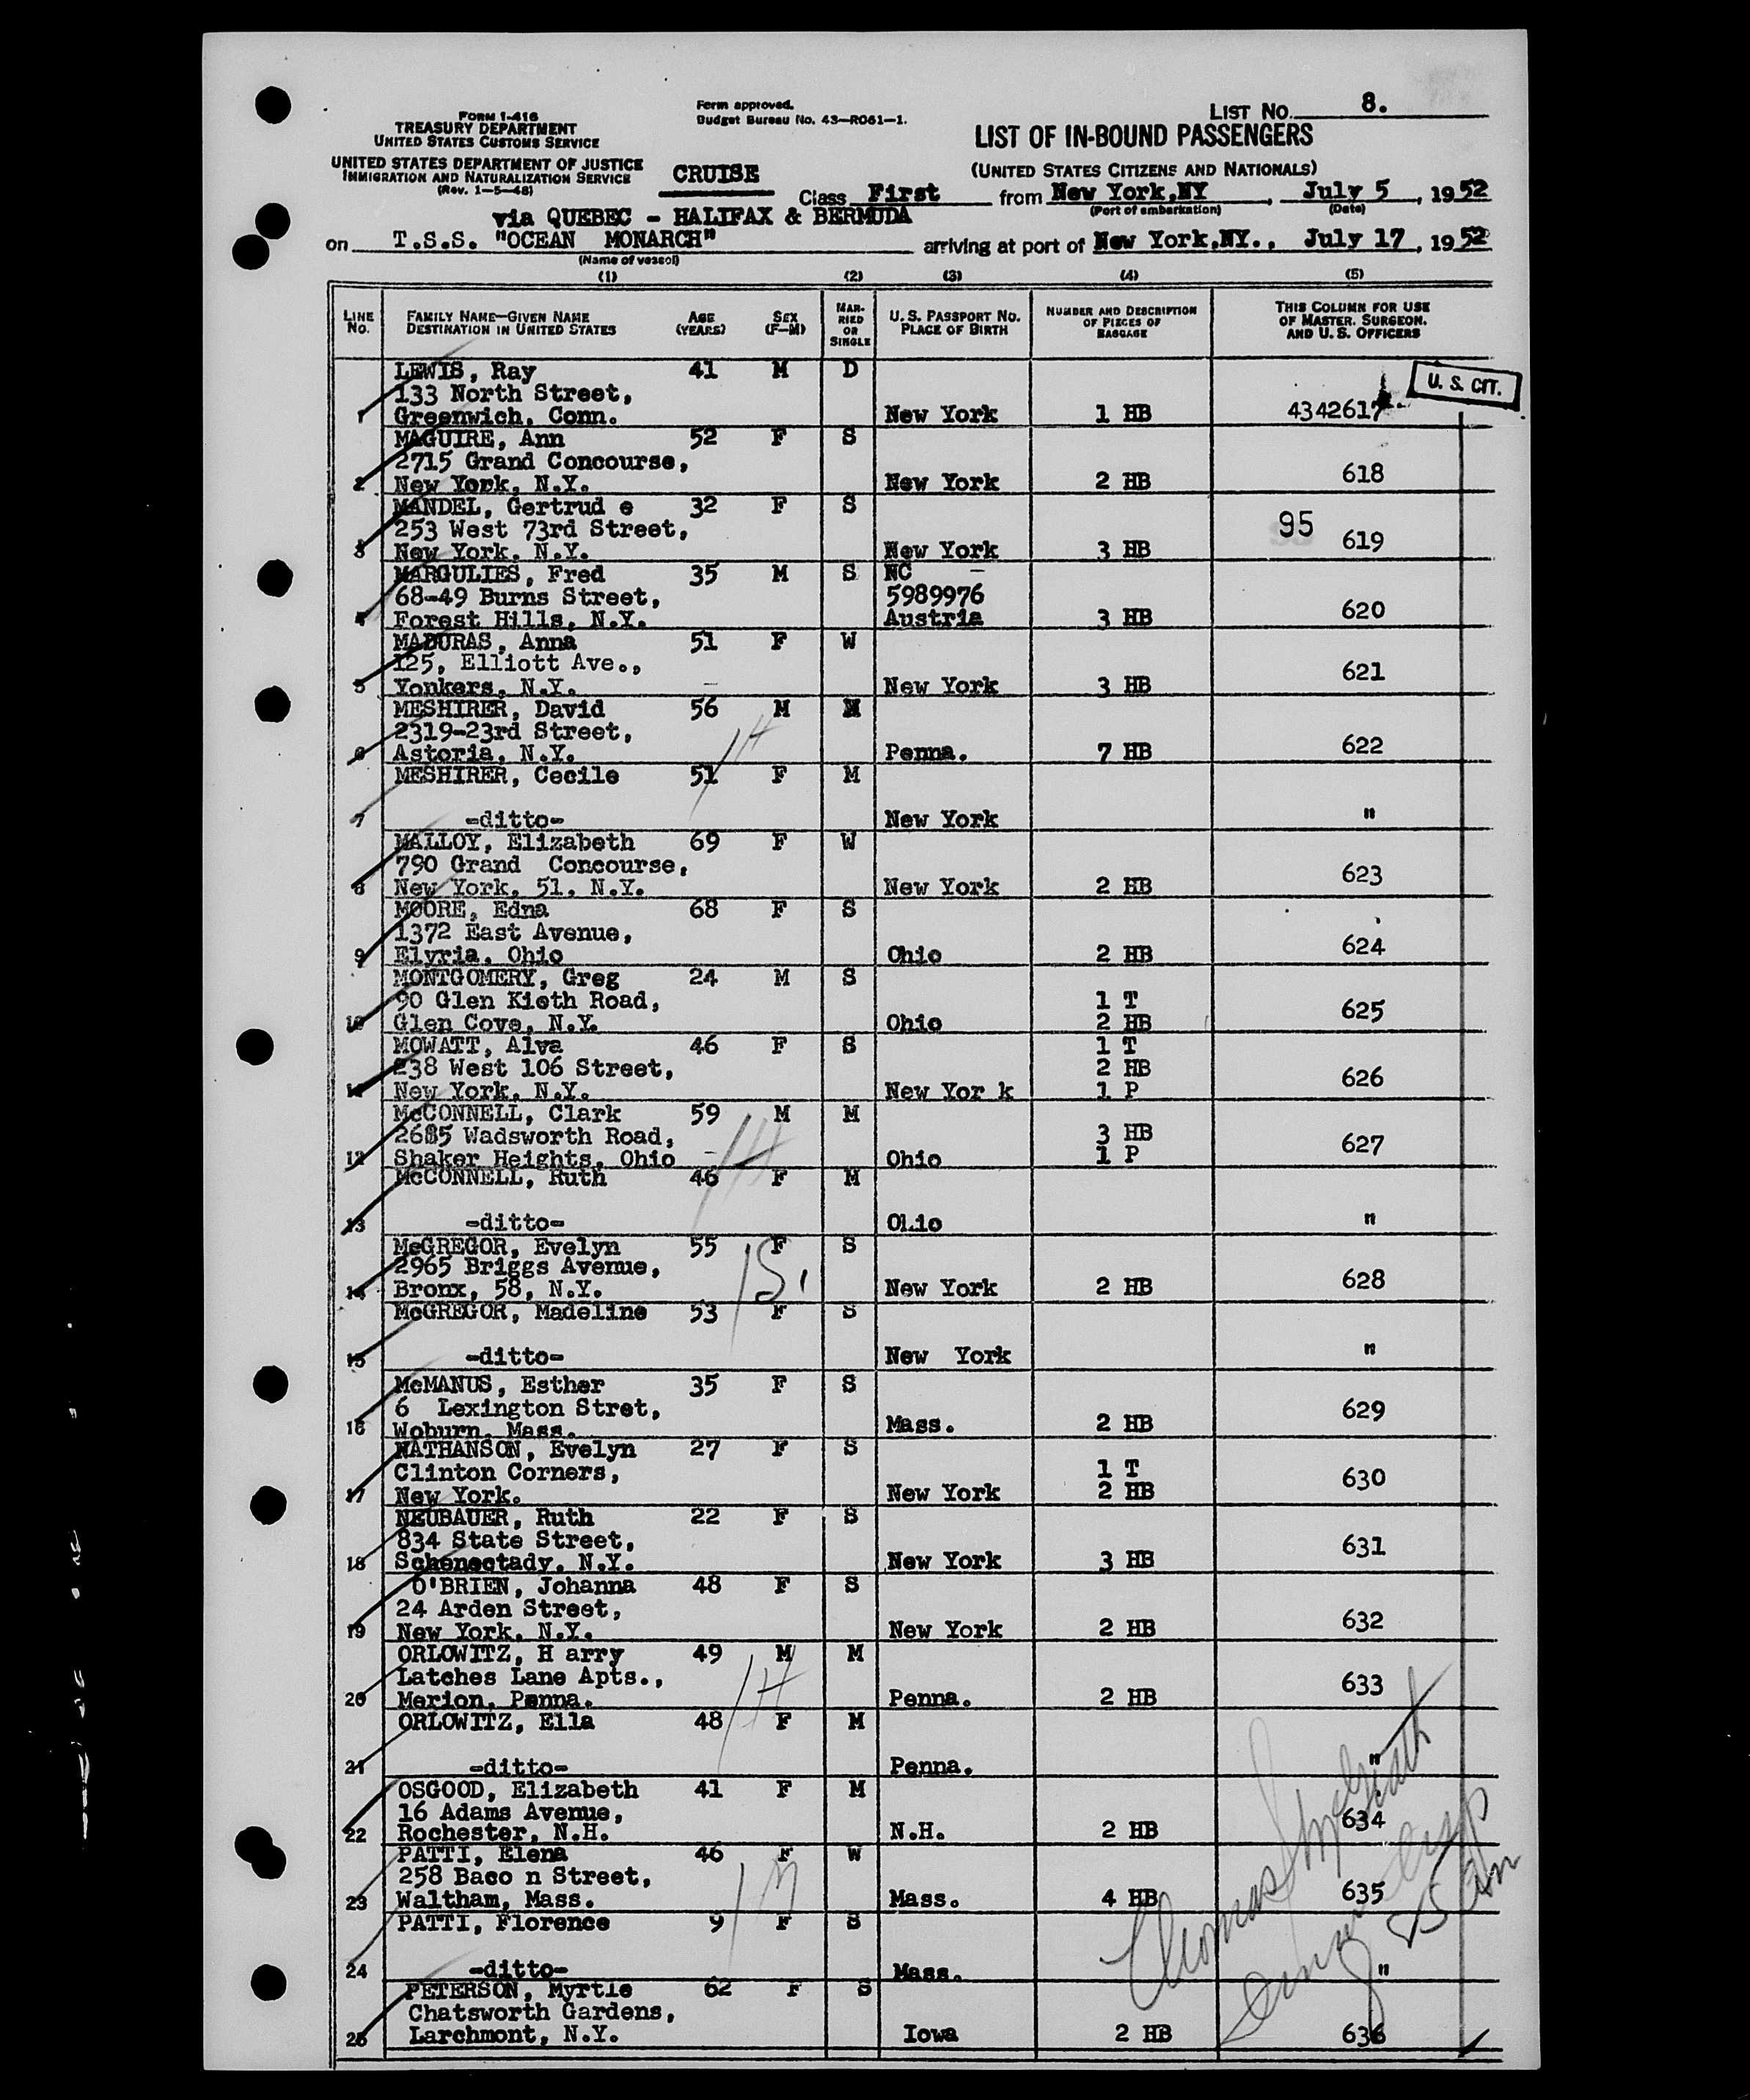 FORM I-416
TREASURY DEPARTMENT
UNITED STATES CUSTOMS SERVICE
UNITED STATES DEPARTMENT OF JUSTICE
IMMIGRATION AND NATURALIZATION SERVICE
(Rev. 1-5-48)
Form approved.
Budget Bureau No. 43-R061-1.
LIST NO. 8.
LIST OF IN-BOUND PASSENGERS
(UNITED STATES CITIZENS AND NATIONALS)
CRUISE
Class First from New York,NY, July 5, 1952
(Port of embarkation) (Date)
via QUEBEC - HALIFAX & BERMUDA
on T.S.S. "OCEAN MONARCH" arriving at port of New York,NY., July 17, 1952
(Name of vessel)
(1) (2) (3) (4) (5)
LINE No. FAMILY NAME—GIVEN NAME DESTINATION IN UNITED STATES AGE (YEARS) SEX (F-M) MARRIED OR SINGLE U. S. PASSPORT NO. PLACE OF BIRTH NUMBER AND DESCRIPTION OF PIECES OF BAGGAGE THIS COLUMN FOR USE OF MASTER, SURGEON, AND U. S. OFFICERS
U. S. CIT.
LEWIS, Ray 41 M D
133 North Street,
1 Greenwich, Conn. New York 1 HB 4342617
MAGUIRE, Ann 52 F S
2715 Grand Concourse, 618
2 New York, N.Y. New York 2 HB
MANDEL, Gertrud e 32 F S
253 West 73rd Street, 95 619
3 New York, N.Y. New York 3 HB
MARGULIES, Fred 35 M S NC
68-49 Burns Street, 5989976 620
4 Forest Hills, N.Y. Austria 3 HB
MADURAS, Anna 51 F W
125, Elliott Ave., 621
5 Yonkers, N.Y. New York 3 HB
MESHIRER, David 56 M M
2319-23rd Street, 622
6 Astoria, N.Y. Penna. 7 HB
MESHIRER, Cecile 51 F M
7 -ditto- New York "
MALLOY, Elizabeth 69 F W
790 Grand Concourse, 623
8 New York, 51, N.Y. New York 2 HB
MOORE, Edna 68 F S
1372 East Avenue, 624
9 Elyria, Ohio Ohio 2 HB
MONTGOMERY, Greg 24 M S
90 Glen Kieth Road, 1 T 625
10 Glen Cove, N.Y. Ohio 2 HB
MOWATT, Alva 46 F S 1 T
238 West 106 Street, 2 HB 626
11 New York, N.Y. New Yor k 1 P
McCONNELL, Clark 59 M M
2685 Wadsworth Road, 3 HB 627
12 Shaker Heights, Ohio Ohio 1 P
McCONNELL, Ruth 46 F M
13 -ditto- Ohio "
McGREGOR, Evelyn 55 F S
2965 Briggs Avenue, 628
14 Bronx, 58, N.Y. New York 2 HB
McGREGOR, Madeline 53 F S
15 -ditto- New York "
McMANUS, Esther 35 F S
6 Lexington Stret, 629
16 Woburn, Mass. Mass. 2 HB
NATHANSON, Evelyn 27 F S
Clinton Corners, 1 T 630
17 New York. New York 2 HB
NEUBAUER, Ruth 22 F S
834 State Street, 631
18 Schenectady, N.Y. New York 3 HB
O'BRIEN, Johanna 48 F S
24 Arden Street, 632
19 New York, N.Y. New York 2 HB
ORLOWITZ, H arry 49 M M
Latches Lane Apts., 633
20 Merion, Penna. Penna. 2 HB
ORLOWITZ, Ella 48 F M
21 -ditto- Penna. "
OSGOOD, Elizabeth 41 F M
16 Adams Avenue, 634
22 Rochester, N.H. N.H. 2 HB
PATTI, Elena 46 F W
258 Baco n Street, 635
23 Waltham, Mass. Mass. 4 HB
PATTI, Florence 9 F S
24 -ditto- Mass. "
PETERSON, Myrtle 62 F S
Chatsworth Gardens,
25 Larchmont, N.Y. Iowa 2 HB 636
Thomas